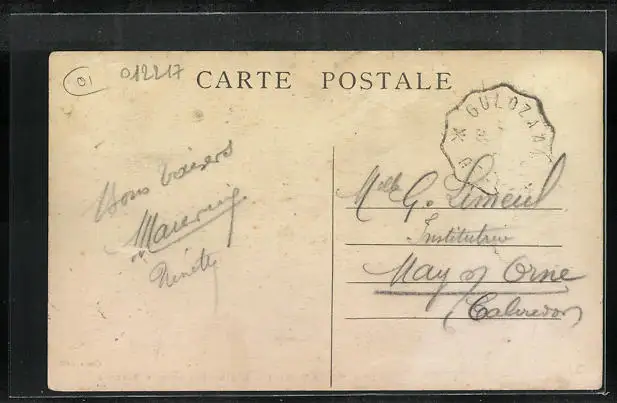 01
012217
CARTE POSTALE
CULOZ A
Bons baisers
Melle G. Limeul
Institutrice
May s/ Orne
(Calvados)